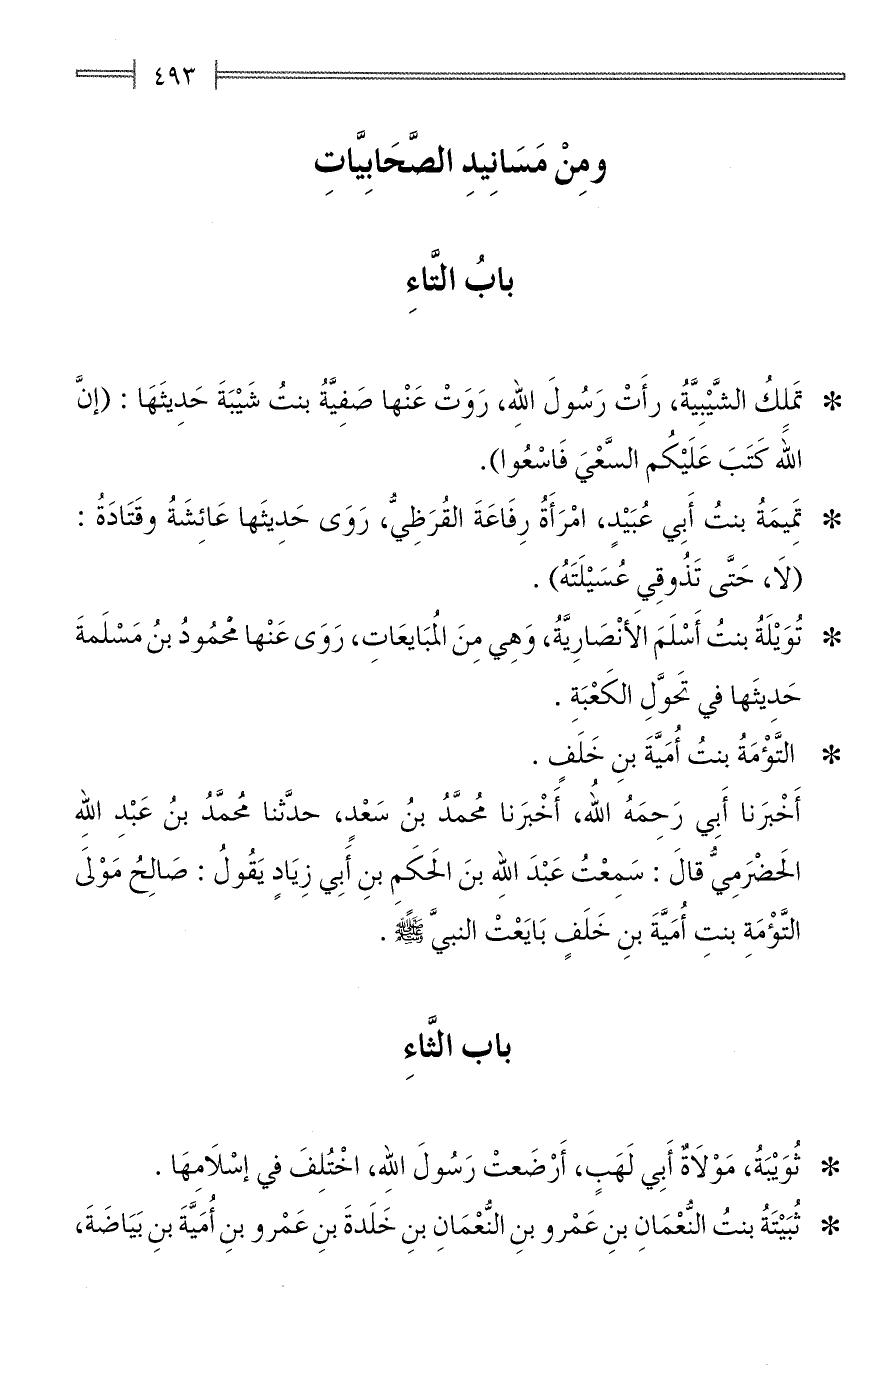 ٤٩٣
ومِنْ مَسَانِيدِ الصَّحَابِيَّاتِ
بابُ التَّاءِ
* تَمَلِكُ الشَّيْبِيَّةُ، رأَتْ رَسُولَ اللهِ، رَوَتْ عَنْها صَفِيَّةُ بنتُ شَيْبَةَ حَدِيثَهَا : (إنَّ
اللهَ كَتَبَ عَلَيْكُم السَّعْيَ فَاسْعُوا).
* تَمِيمَةُ بنتُ أَبِي عُبَيْدٍ، امْرَأَةُ رِفَاعَةَ القُرَظِيُّ، رَوَى حَدِيثَها عَائِشَةُ وقَتَادَةُ :
(لَا، حَتَّى تَذُوقِي عُسَيْلَتَهُ) .
* تُوَيْلَةُ بنتُ أَسْلَمَ الأَنْصَارِيَّةُ، وَهِي مِنَ المُبَايعَاتِ، رَوَى عَنْها مَحْمُودُ بنُ مَسْلَمةَ
حَدِيثَها في تَحَوَّلِ الكَعْبَةِ .
* التَّوْءَمَةُ بنتُ أُمَيَّةَ بنِ خَلَفٍ .
أَخْبَرَنا أَبِي رَحِمَهُ اللهُ، أَخْبَرَنا مُحمَّدُ بنُ سَعْدٍ، حدَّثنا محمَّدُ بنُ عَبْدِ اللهِ
الحَضْرَمِيُّ قالَ : سَمِعْتُ عَبْدَ اللهِ بنَ الحَكَمِ بنِ أَبي زِيَادٍ يَقُولُ : صَالِحُ مَوْلَى
التَّوْءَمَةِ بنتِ أُمَيَّةَ بنِ خَلَفٍ بَايَعْتْ النبيَّ ﷺ .
باب الثَّاءِ
* ثُوَيْبَةُ، مَوْلَاةُ أَبِي لَهَبٍ، أَرْضَعتْ رَسُولَ اللهِ، اخْتُلِفَ في إسْلَامِهَا .
* ثُبَيْتَةُ بنتُ النُّعْمَانِ بنِ عَمْرو بنِ النُّعْمَانِ بنِ خَلَدةَ بنِ عَمْرو بنِ أُمَيَّةَ بنِ بَيَاضَةَ،